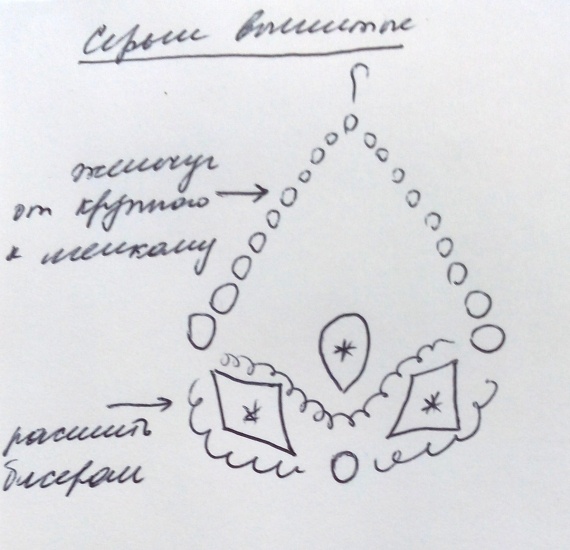 Серьги вышитые
жемчуг
от крупного
к мелкому
расшить
бисером